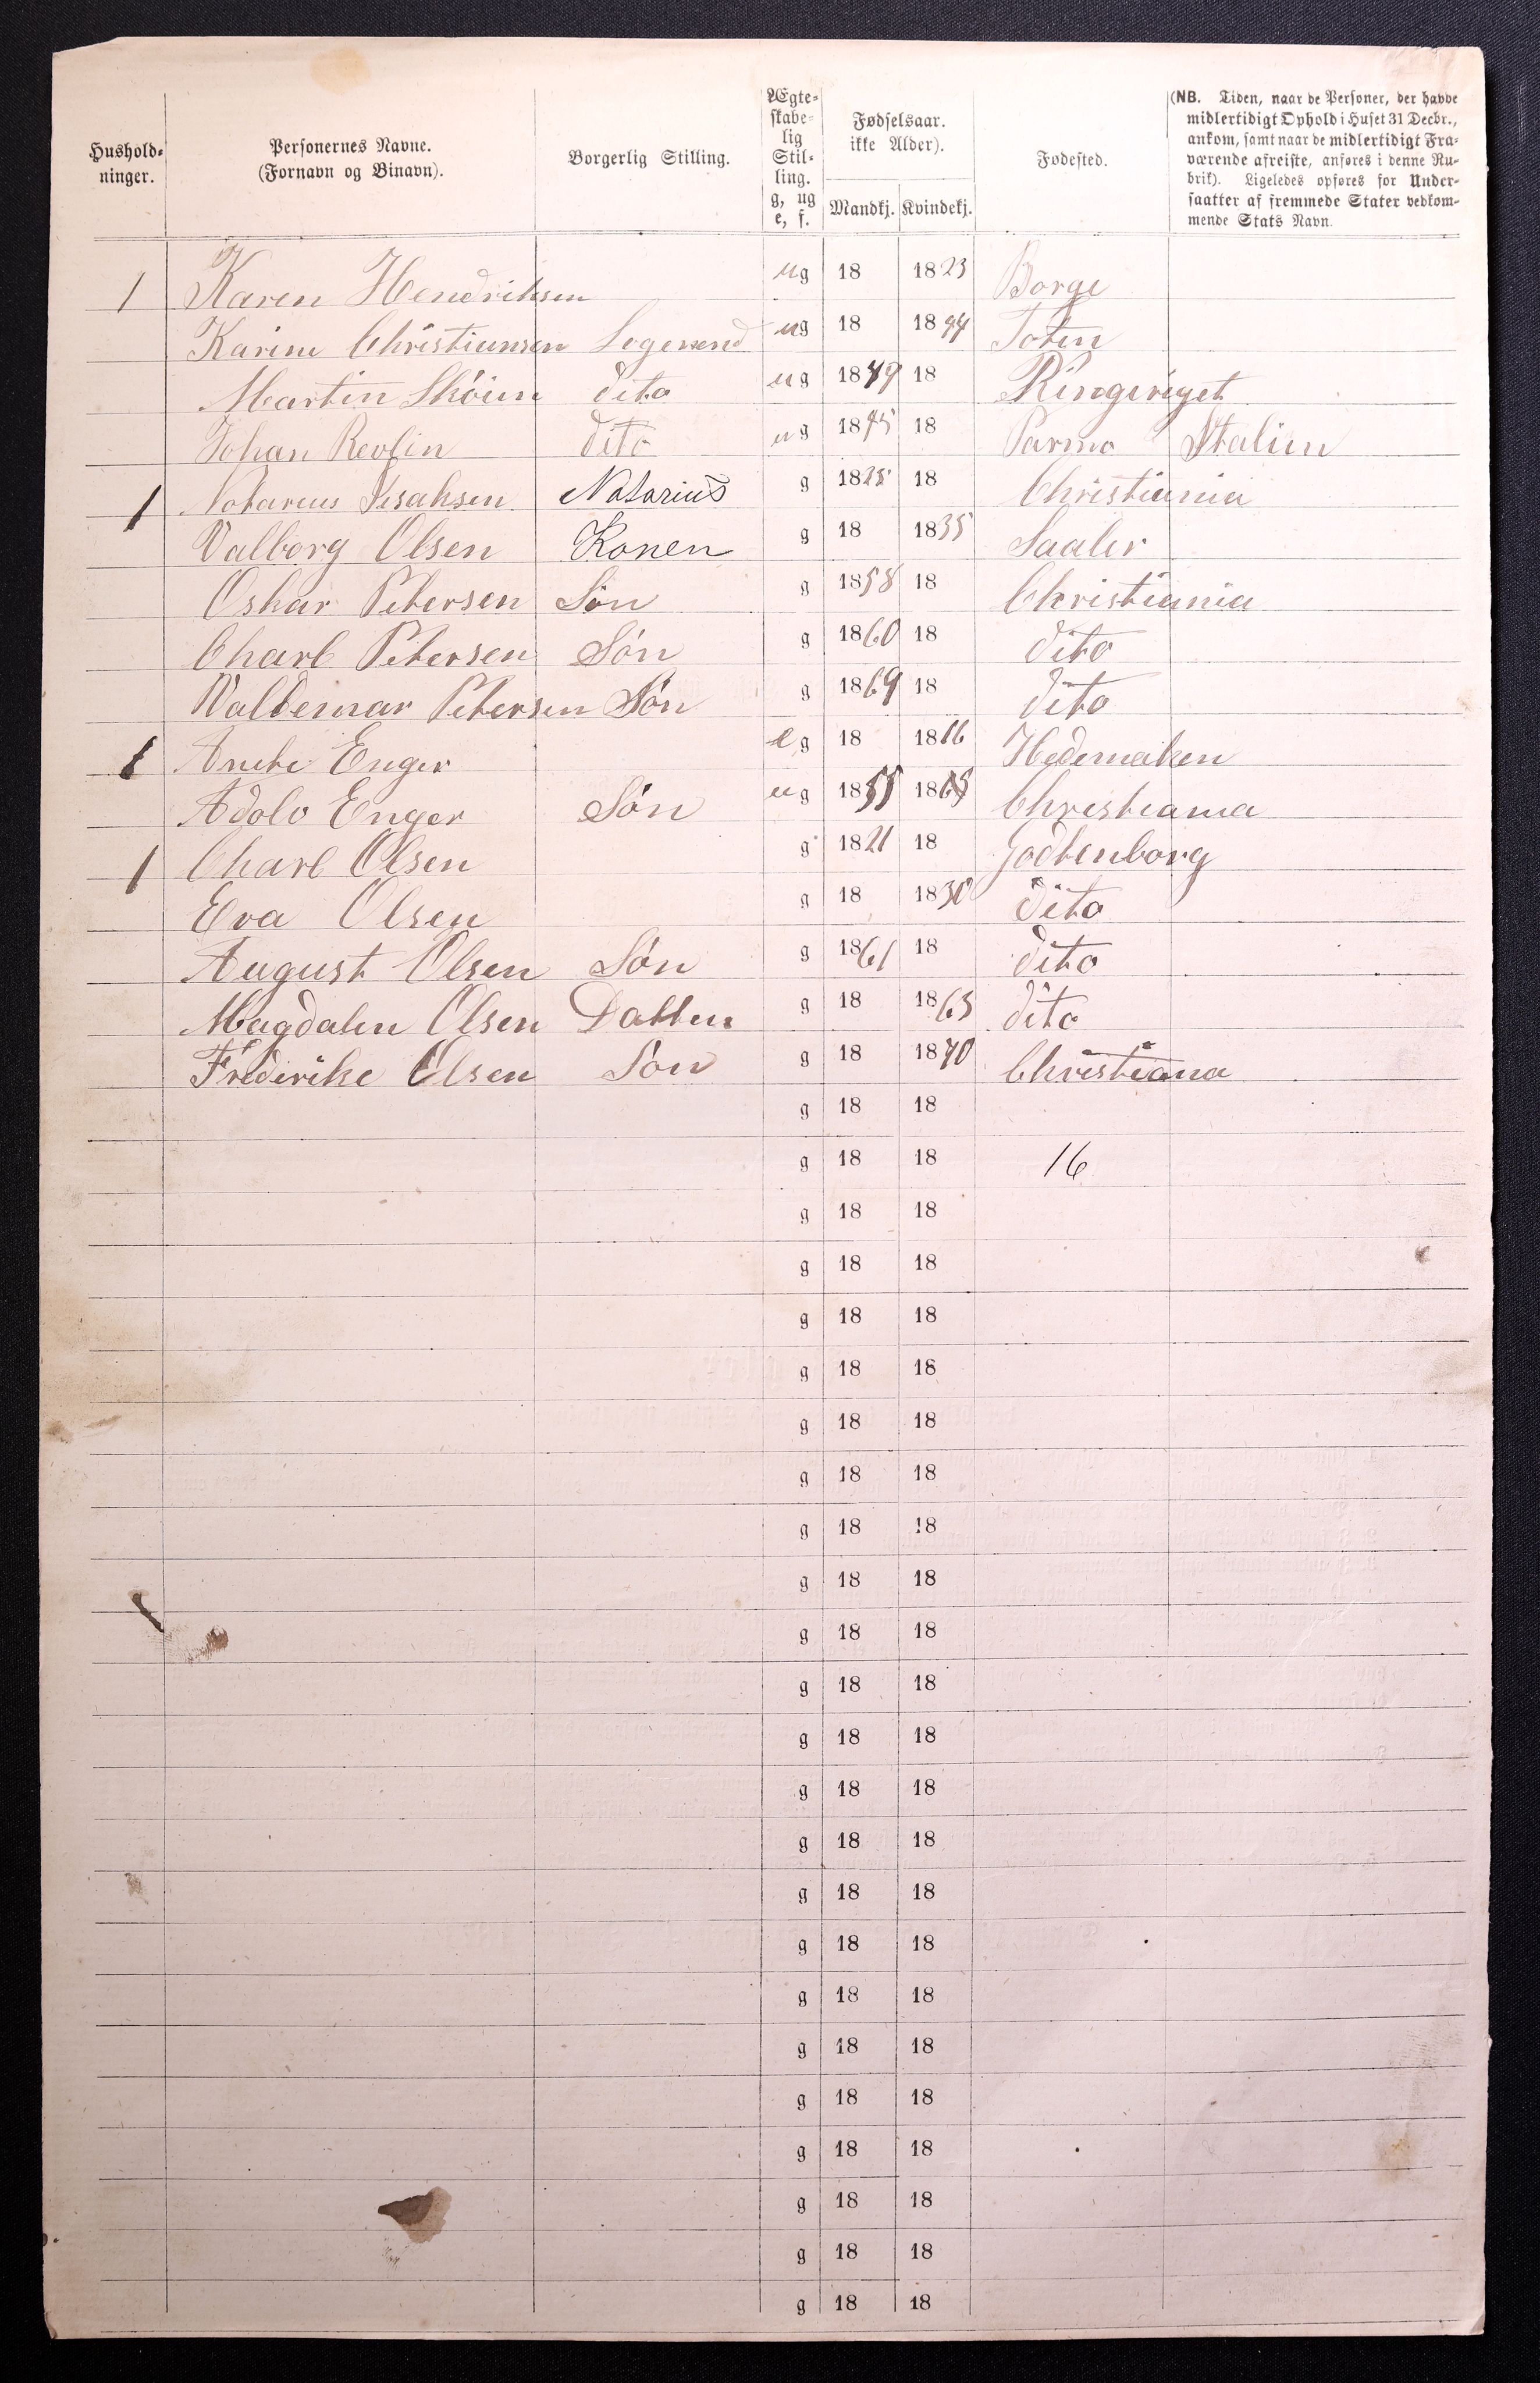 Hushold-ninger. Personernes Navne. (Fornavn og Binavn). Borgerlig Stilling. Ægte-skabe-lig Stil-ling. g, ug e, f. Fødselsaar. ikke Alder). Mandkj. Kvindekj. Fødested. (NB. Tiden, naar de Personer, der havde midlertidigt Ophold i Huset 31 Decbr., ankom, samt naar de midlertidigt Fra-værende afreiste, anføres i denne Ru-brik). Ligeledes opføres for Under-saatter af fremmede Stater vedkom-mende Stats Navn.
1 Karen Hendriksen ug 18 1823 Borge
Karine Christiansen Logerend ug 18 18 Toten
Martin Sköien dito ug 1849 18 Ringeriget
Johan dito ug 1845 18 Parma Italien
1 Notarius Isaksen Notarius g 1825 18 Christiania
Valborg Olsen Konen g 18 1835 Saaler
Oskar Petersen Sön g 1858 18 Christiania
Charl Petersen Sön g 1860 18 dito
Valdemar Petersen Sön g 1869 18 dito
1 Anete Enger eg 18 1816 Hedemaken
Adolv Enger Sön ug 1855 18 Christiania
1 Charl Olsen g 1821 18 Godtenborg
Eva Olsen g 18 1830 dito
August Olsen Sön g 1861 18 dito
Magdalen Olsen Datter g 18 1865 dito
Frederike Olsen Sön g 18 1870 Christiana
g 18 18
g 18 18 16
g 18 18
g 18 18
g 18 18
g 18 18
g 18 18
g 18 18
g 18 18
g 18 18
g 18 18
g 18 18
g 18 18
g 18 18
g 18 18
g 18 18
g 18 18
g 18 18
g 18 18
g 18 18
g 18 18
g 18 18
g 18 18
g 18 18